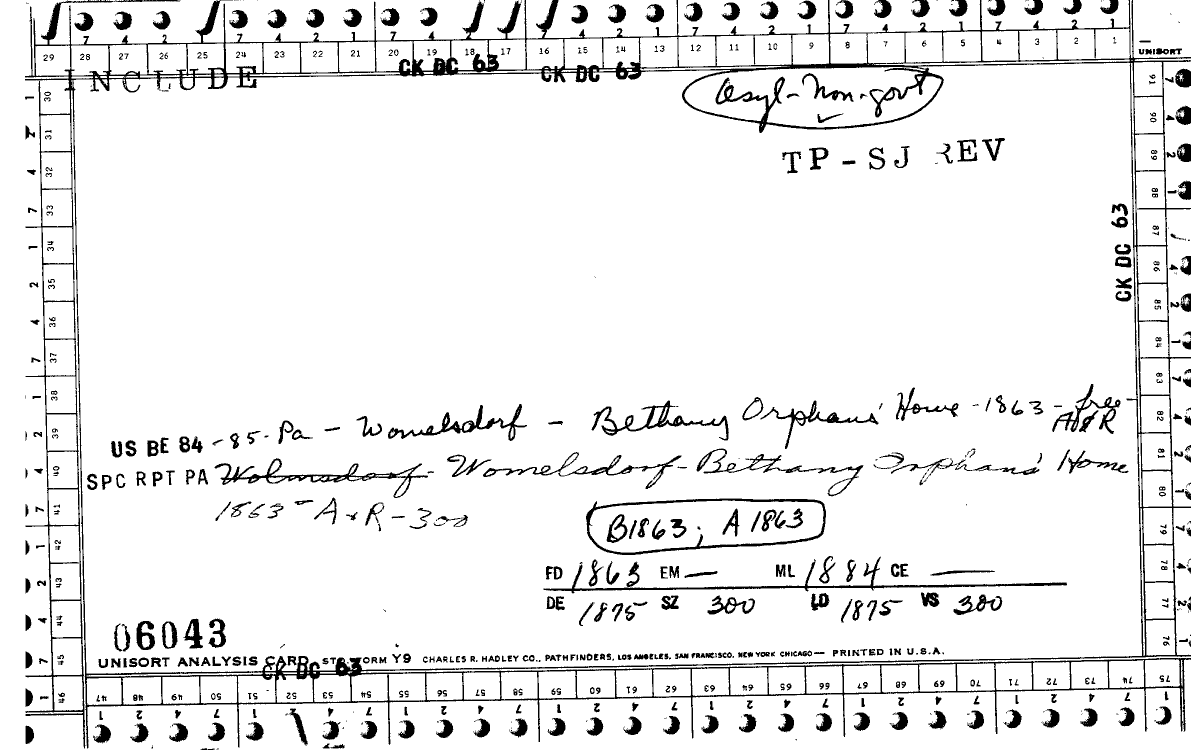 7 4 2 1 7 4 2 1 7 4 2 1 7 4 2 1 7 4 2 1
29 28 27 26 25 24 23 22 21 20 19 18 17 16 15 14 13 12 11 10 9 8 7 6 5 4 3 2 1
UNISORT
CK DC 63 CK DC 63
INCLUDE
Asyl-Non-govt
TP-SJ REV
CK DC 63
US BE 84-85-Pa - Womelsdorf - Bethany Orphans' Home-1863-free-
A&R
SPC RPT PA Wolmsdorf- Womelsdorf-Bethany Orphans' Home
1863-A&R-300
B1863; A 1863
FD 1863 EM — ML 1884 CE —
DE 1875 SZ 300 LD 1875 VS 300
06043
UNISORT ANALYSIS CARD FORM Y9 CHARLES R. HADLEY CO., PATHFINDERS, LOS ANGELES, SAN FRANCISCO, NEW YORK CHICAGO— PRINTED IN U.S.A.
CK DC 63
30 31 32 33 34 35 36 37 38 39 40 41 42 43 44 45 46
47 48 49 50 51 52 53 54 55 56 57 58 59 60 61 62 63 64 65 66 67 68 69 70 71 72 73 74 75
76 77 78 79 80 81 82 83 84 85 86 87 88 89 90 91